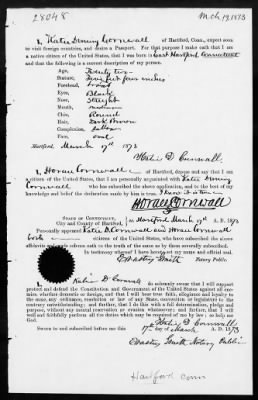 28048
Mch. 19, 1873
I, Katie Deming Cornwall of Hartford, Conn., expect soon
to visit foreign countries, and desire a Passport. For this purpose I make oath that I am
a native citizen of the United States, that I was born in East Hartford Connecticut
and that the following is a correct description of my person.
Age, Twenty two
Stature, Five feet four inches
Forehead, Broad
Eyes, Black
Nose, Straight
Mouth, medium
Chin, Round
Hair, Dark Brown
Complexion, Sallow
Face, oval
Hartford, March 17th 1873
Katie D. Cornwall
I, Horace Cornwall of Hartford, depose and say that I am
a native citizen of the United States, that I am personally acquainted with Katie Deming
Cornwall who has subscribed the above application, and to the best of my
knowledge and belief the declarations made by her are true.
Horace Cornwall
STATE OF CONNECTICUT,
City and County of Hartford, ss. Hartford March 17th A. D. 1873
Personally appeared Katie D. Cornwall and Horace Cornwall
both citizens of the United States, who have subscribed the above
affidavits
In testimony whereof I have hereunto set my name and official seal.
Notary Public.
I, Katie D. Cornwall do solemnly swear that I will support
protect and defend the Constitution and Government of the United States against all en-
emies, whether domestic or foreign, and that I will bear true faith, allegiance and loyalty to
the same, any ordinance, resolution or law of any State, convention or legislature to the
contrary notwithstanding; and further, that I do this with a full determination, pledge and
purpose, without any mental reservation or evasion whatsoever; and further, that I will
well and faithfully perform all the duties which may be required of me by law; so help me
God.
Katie D. Cornwall
Sworn to and subscribed before me this 17th day of March A. D. 1873
Notary Public
Hartford Conn